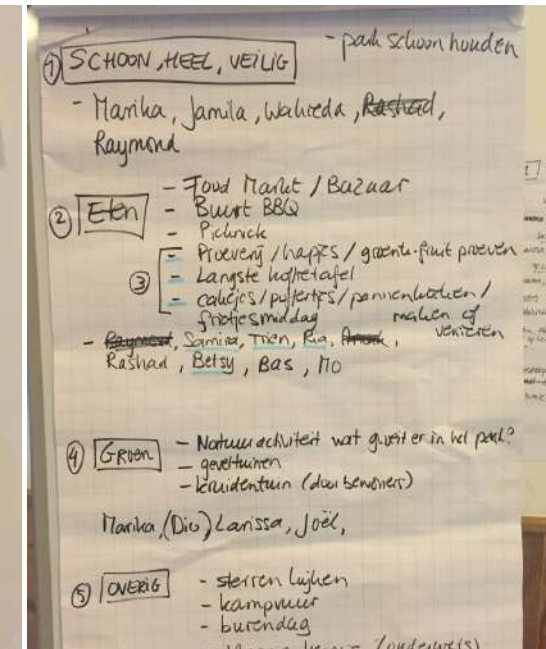 - park schoon houden
① SCHOON, HEEL, VEILIG
- Marika, Jamila, Wahieda, Rashad,
Raymond
- Food Markt / Bazaar
② Eten - Buurt BBQ
- Picknick
- Proeverij / hapjes / groente-fruit proeven
③ - Langste koffietafel
- cakejes / poffertjes / pannenkoeken /
frietjesmiddag maken of
versieren
- Raymond, Samira, Trien, Ria, Anouk,
Rashad, Betsy, Bas, Mo
④ Groen - Natuuractiviteit wat groeit er in het park?
- geveltuinen
- kruidentuin (door bewoners)
Marika, (Dio) Larissa, Joël,
⑤ OVERIG - sterren kijken
- kampvuur
- burendag